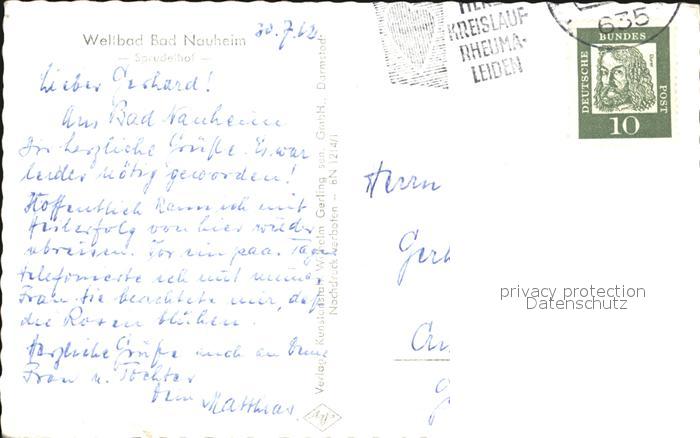 Weltbad Bad Nauheim
— Sprudelhof —
30.7.62
Lieber Gerhard!
Aus Bad Nauheim
Dir herzliche Grüße. Es war
leider nötig geworden!
Hoffentlich kann ich mit
von hier wieder
abreisen. Vor ein paar Tagen
telefonierte ich mit meiner
Frau. Sie berichtete mir, daß
die Rosen blühen.
Herzliche Grüße auch an Deine
Frau u. Töchter
Dein Matthias.
Verlag: Kunstanstalt Wilhelm Gerling sen. GmbH., Darmstadt
Nachdruck verboten – BN 1214/1
HERZ
KREISLAUF
RHEUMA-
LEIDEN
635
DEUTSCHE BUNDES POST
10
Herrn
Ger
privacy protection
Datenschutz